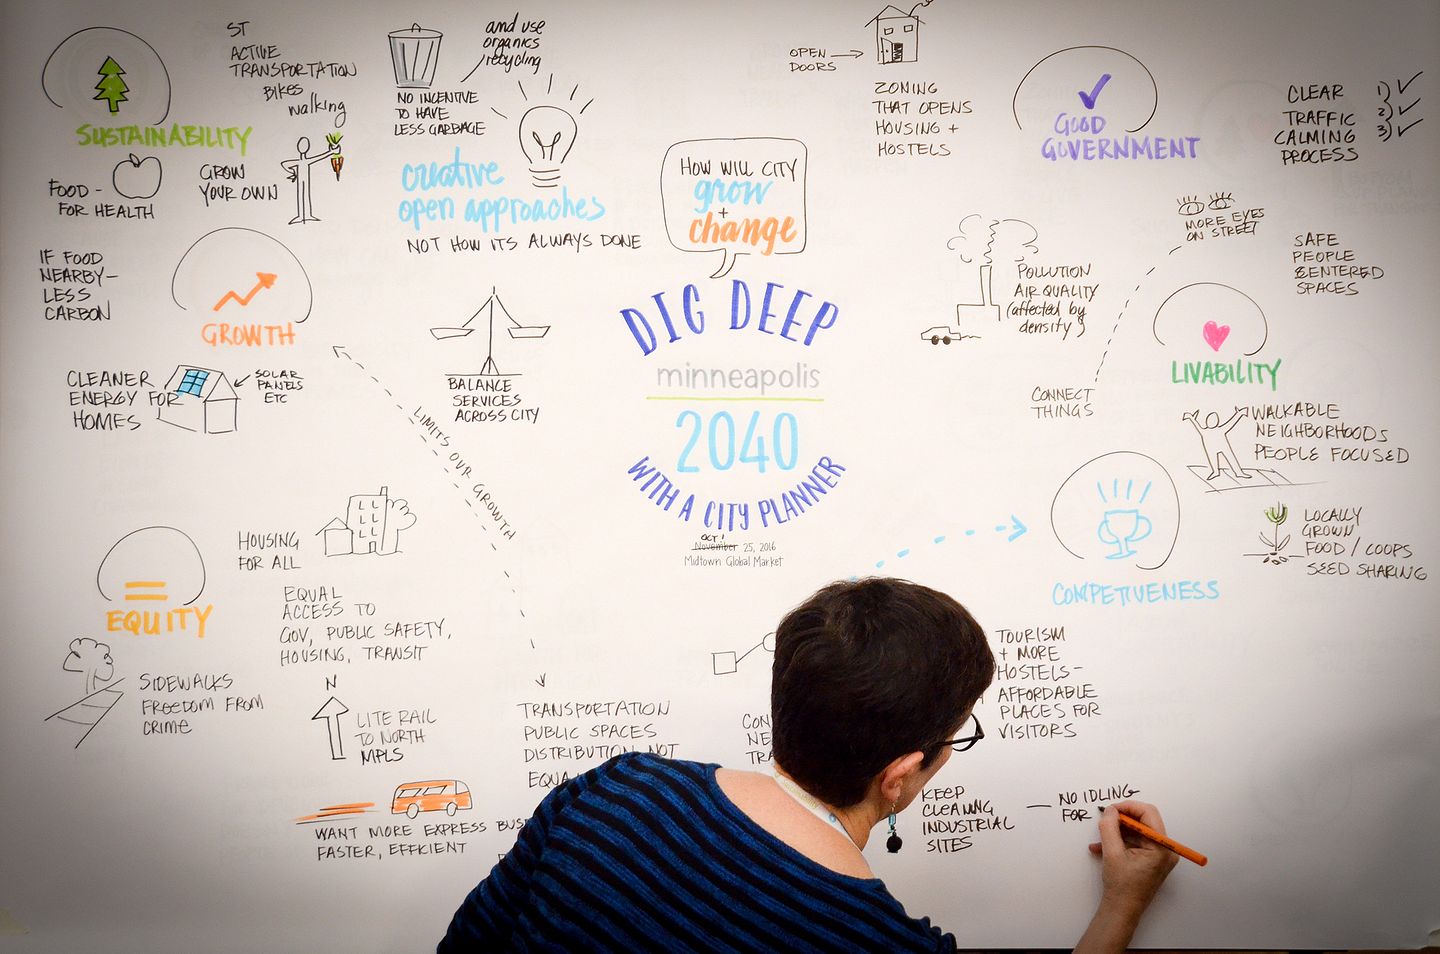 ST
ACTIVE
TRANSPORTATION
BIKES
walking
SUSTAINABILITY
FOOD -
FOR HEALTH
GROW
YOUR OWN
and use
organics
recycling
NO INCENTIVE
TO HAVE
LESS GARBAGE
creative
open approaches
NOT HOW ITS ALWAYS DONE
HOW WILL CITY
grow
+
change
OPEN
DOORS
ZONING
THAT OPENS
HOUSING +
HOSTELS
GOOD
GOVERNMENT
CLEAR
TRAFFIC
CALMING
PROCESS
1)
2)
3)
IF FOOD
NEARBY -
LESS
CARBON
GROWTH
CLEANER
ENERGY FOR
HOMES
SOLAR
PANELS
ETC
BALANCE
SERVICES
ACROSS CITY
LIMITS OUR GROWTH
DIG DEEP
minneapolis
2040
WITH A CITY PLANNER
OCT
November 25, 2016
Midtown Global Market
POLLUTION
AIR QUALITY
(affected by
density)
MORE EYES
ON STREET
SAFE
PEOPLE
CENTERED
SPACES
CONNECT
THINGS
LIVABILITY
WALKABLE
NEIGHBORHOODS
PEOPLE FOCUSED
LOCALLY
GROWN
FOOD / COOPS
SEED SHARING
COMPETIVENESS
HOUSING
FOR ALL
EQUITY
EQUAL
ACCESS TO
GOV, PUBLIC SAFETY,
HOUSING, TRANSIT
SIDEWALKS
FREEDOM FROM
CRIME
N
LITE RAIL
TO NORTH
MPLS
WANT MORE EXPRESS BUS
FASTER, EFFICIENT
TRANSPORTATION
PUBLIC SPACES
DISTRIBUTION NOT
EQUA
CON
NE
TRA
TOURISM
+ MORE
HOSTELS -
AFFORDABLE
PLACES FOR
VISITORS
KEEP
CLEANING
INDUSTRIAL
SITES
NO IDLING
FOR